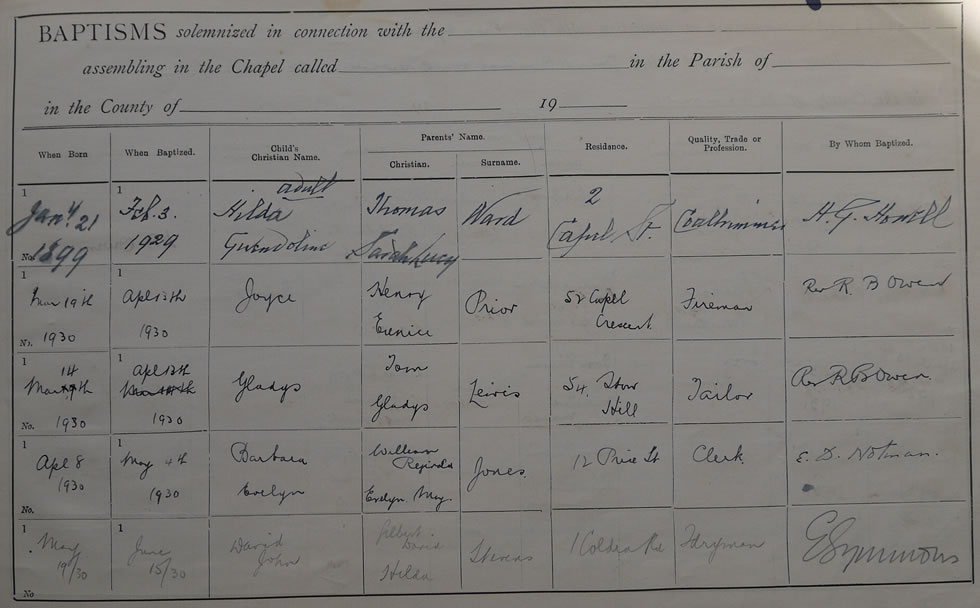 BAPTISMS solemnized in connection with the
assembling in the Chapel called in the Parish of
in the County of 19
When Born When Baptized. Child's Christian Name. Parents' Name. Christian. Surname. Residence. Quality, Trade or Profession. By Whom Baptized.
1 1 adult 2
Jany. 21 Feb. 3. Hilda Thomas Ward Capel St. Coaltrimmer H. G. Howell
No. 1899 1929 Gwendoline Sarah Lucy
1 1
Mar 19th Apl 13th Joyce Henry Prior 52 Capel Fireman Rev R. B Owen
No. 1930 1930 Eunice Crescent
1 14 1 Apl 13th Tom
Gladys Lewis 54. Stow Tailor Rev R B Owen.
No. 1930 1930 Gladys Hill
1 1
Apl 8 May 4th Barbara William Reginald Jones. 12 Price St Clerk. E. D. Notman.
1930 1930 Evelyn Evelyn May.
No.
1 1
May June David Albert David Stevens 1 Coldra Rd E Symmons
19/30 15/30 John Hilda
No